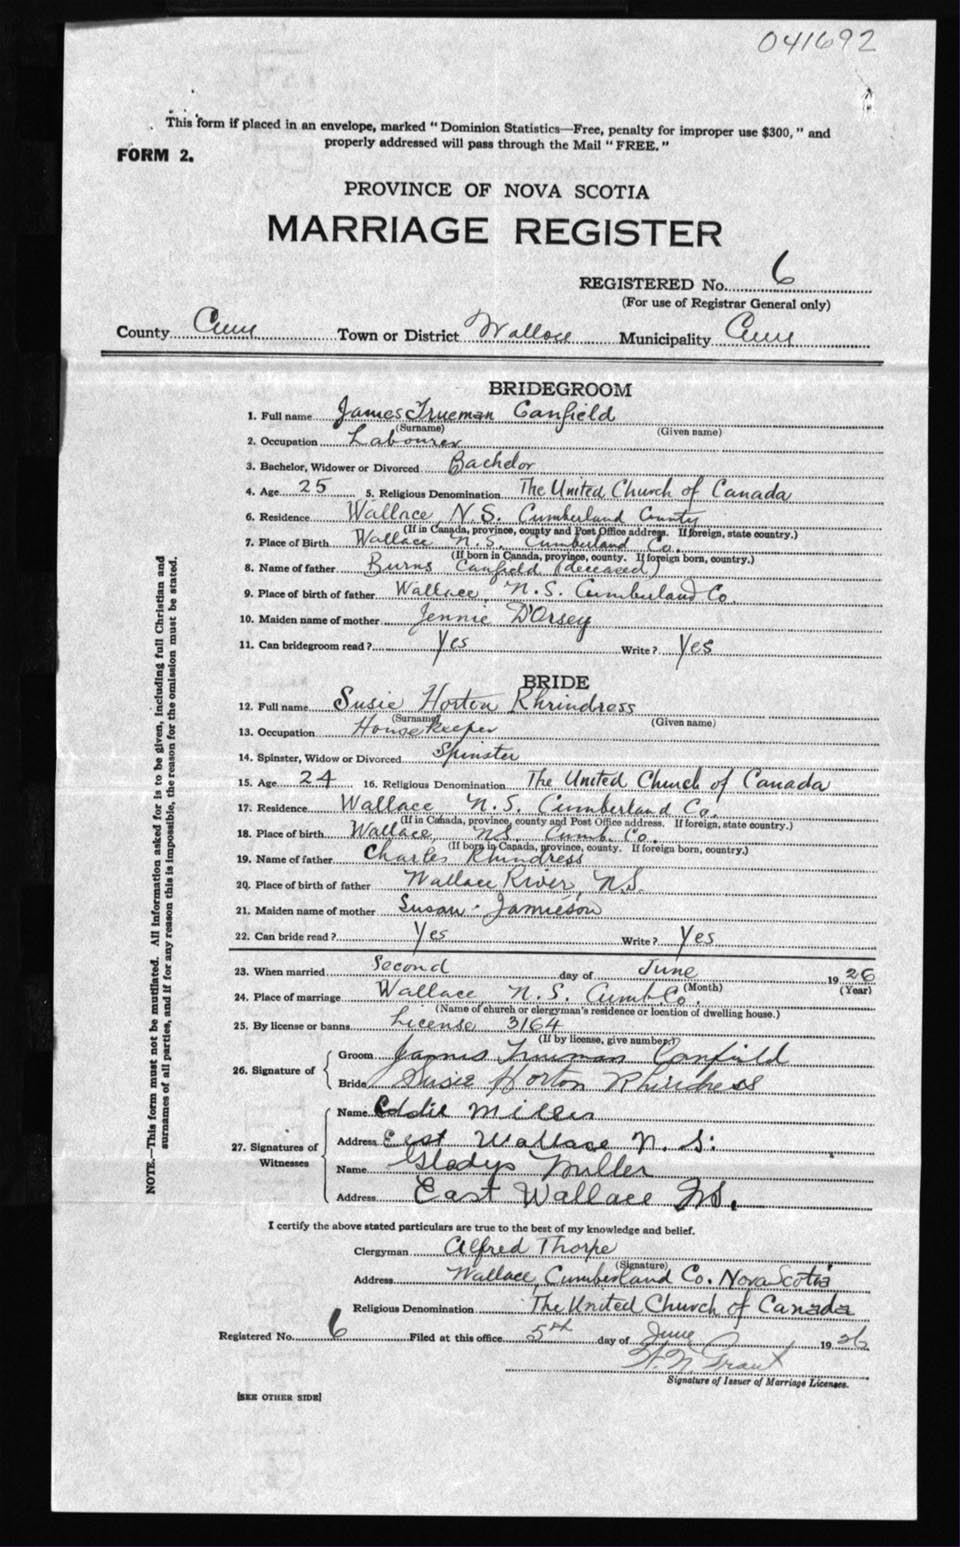 041692
This form if placed in an envelope, marked "Dominion Statistics—Free, penalty for improper use $300," and
properly addressed will pass through the Mail "FREE."
FORM 2.
PROVINCE OF NOVA SCOTIA
MARRIAGE REGISTER
REGISTERED No. 6
(For use of Registrar General only)
County Cum Town or District Wallace Municipality Cum
BRIDEGROOM
1. Full name James Trueman Canfield
(Surname) (Given name)
2. Occupation Labourer
3. Bachelor, Widower or Divorced Bachelor
4. Age 25 5. Religious Denomination The United Church of Canada
6. Residence Wallace N.S. Cumberland County
(If in Canada, province, county and Post Office address. If foreign, state country.)
7. Place of Birth Wallace N.S. Cumberland Co.
(If born in Canada, province, county. If foreign born, country.)
8. Name of father Burns Canfield (deceased)
9. Place of birth of father Wallace, N.S. Cumberland Co.
10. Maiden name of mother Jennie D'Orsey
11. Can bridegroom read? Yes Write? Yes
BRIDE
12. Full name Susie Horton Rhrindress
(Surname) (Given name)
13. Occupation Housekeeper
14. Spinster, Widow or Divorced Spinster
15. Age 24 16. Religious Denomination The United Church of Canada
17. Residence Wallace N.S. Cumberland Co.
(If in Canada, province, county and Post Office address. If foreign, state country.)
18. Place of birth Wallace, NS Cumb. Co.
(If born in Canada, province, county. If foreign born, country.)
19. Name of father Charles Rhindress
20. Place of birth of father Wallace River, N.S.
21. Maiden name of mother Susan Jamieson
22. Can bride read? Yes Write? Yes
23. When married Second day of June 1926
(Month) (Year)
24. Place of marriage Wallace N.S. Cumb Co.
(Name of church or clergyman's residence or location of dwelling house.)
25. By license or banns License 3164
(If by license, give number.)
26. Signature of Groom James Trueman Canfield
Bride Susie Horton Rhindress
27. Signatures of Witnesses Name Eddie Miller
Address East Wallace N. S.
Name Gladys Miller
Address East Wallace N.S.
I certify the above stated particulars are true to the best of my knowledge and belief.
Clergyman Alfred Thorpe
(Signature)
Address Wallace, Cumberland Co. Nova Scotia
Religious Denomination The United Church of Canada
Registered No. 6 Filed at this office 5th day of June 1926
Grant
Signature of Issuer of Marriage Licenses.
[SEE OTHER SIDE]
NOTE.—This form must not be mutilated. All information asked for is to be given, including full Christian and
surnames of all parties, and if for any reason this is impossible, the reason for the omission must be stated.